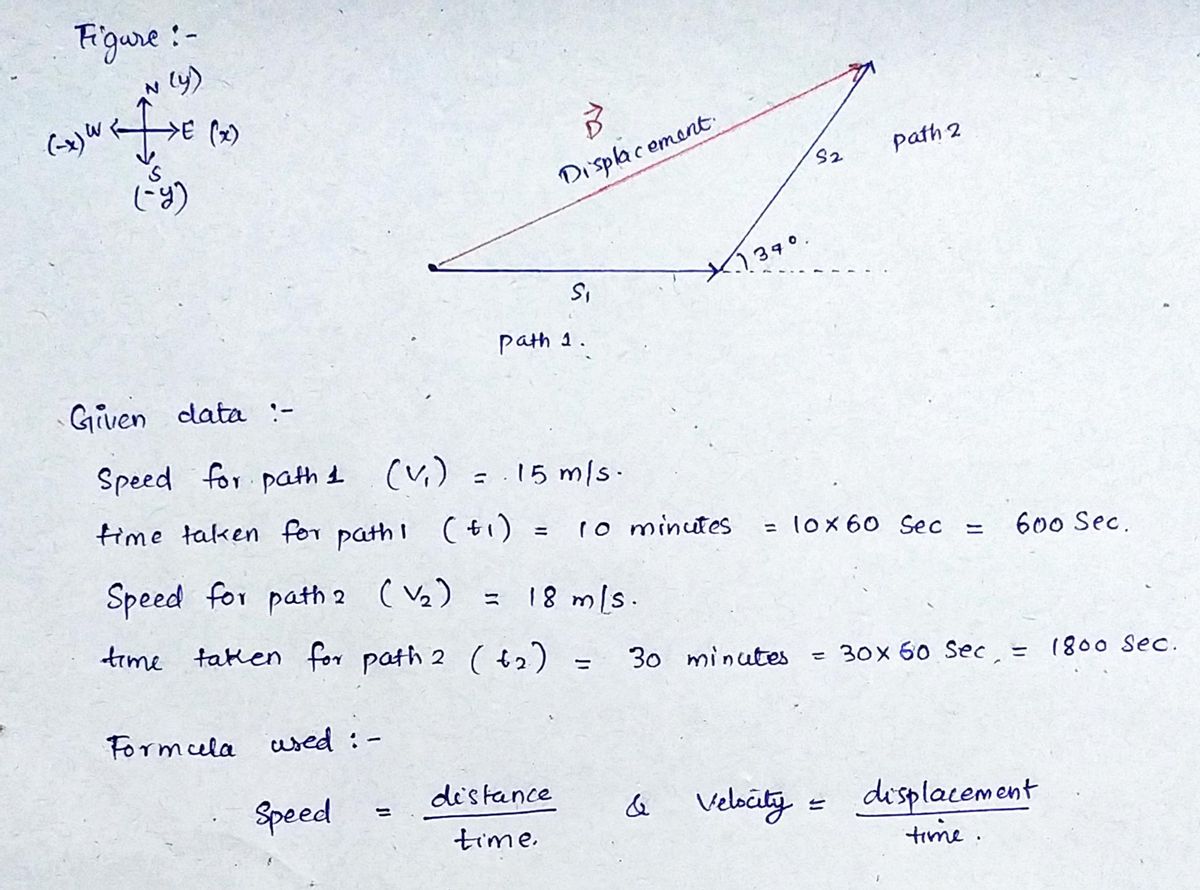 Figure :-
N (y)
(-x) W E (x)
S
(-y)
D
Displacement.
S2
path 2
37°.
S1
path 1.
Given data :-
Speed for path 1 (V1) = 15 m/s.
time taken for path 1 (t1) = 10 minutes = 10×60 Sec = 600 Sec.
Speed for path 2 (V2) = 18 m/s.
time taken for path 2 (t2) = 30 minutes = 30×60 Sec. = 1800 Sec.
Formula used :-
Speed = distance / time. & Velocity = displacement / time.